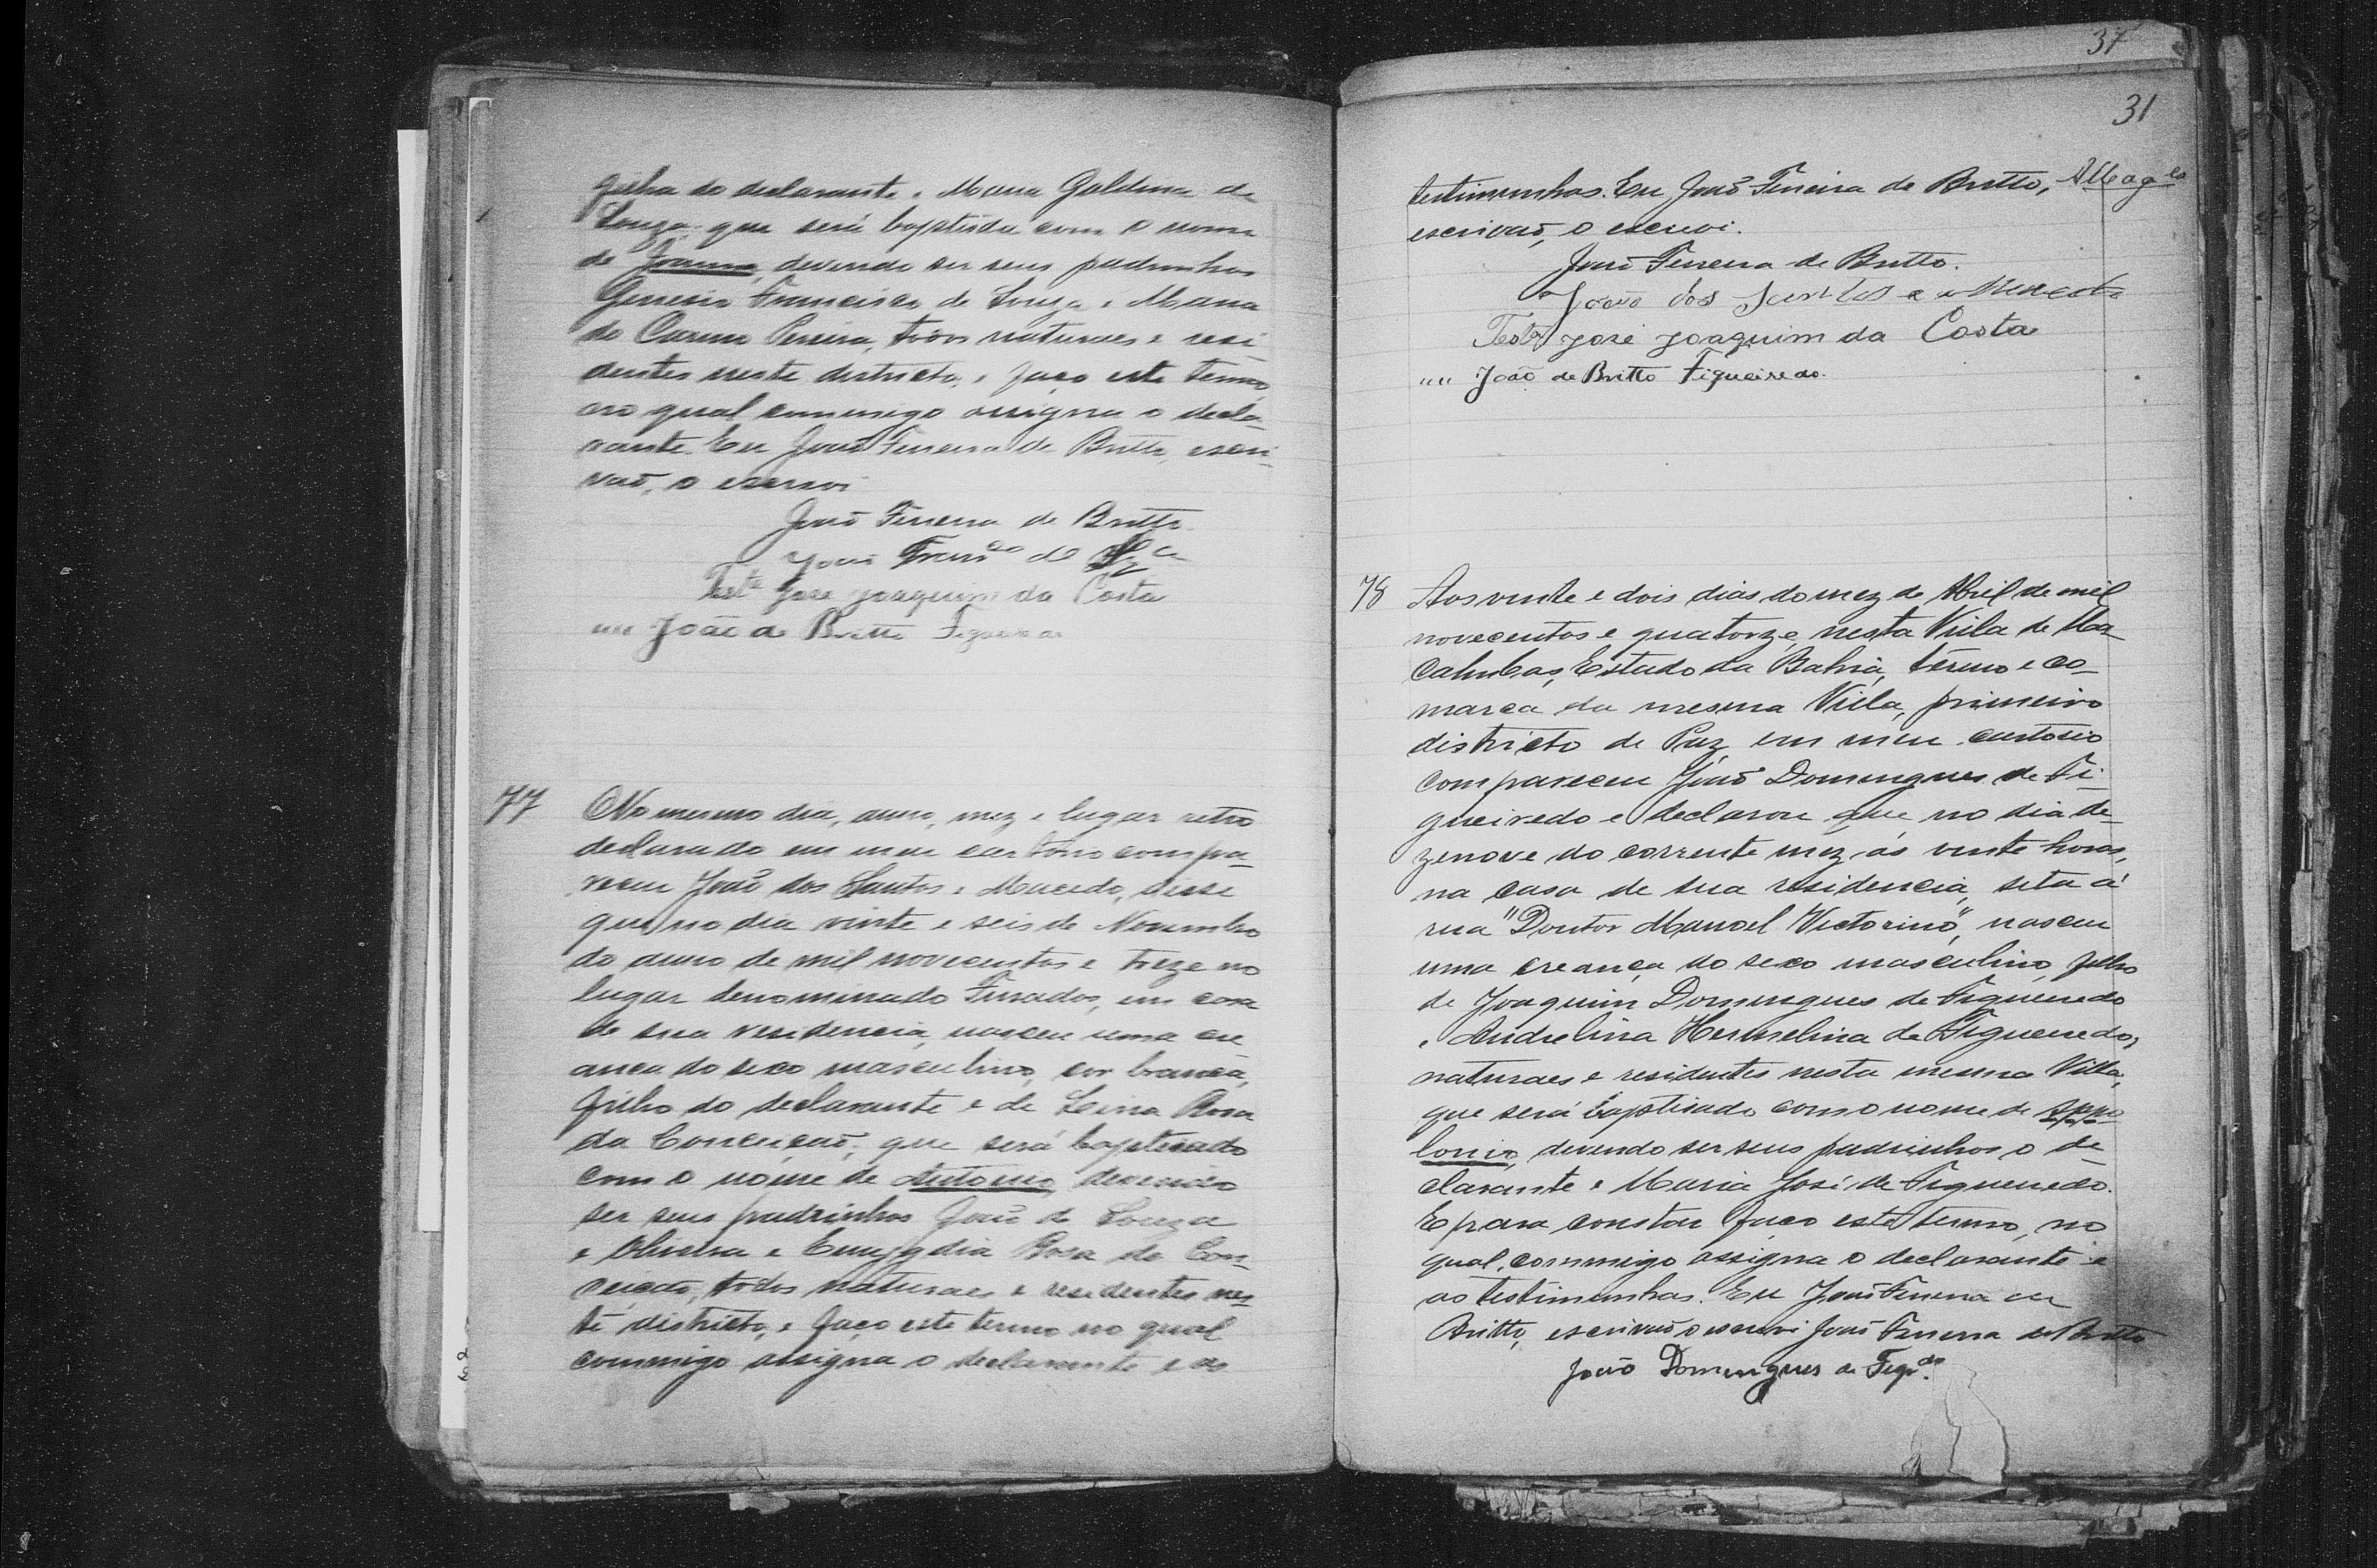 filha do declarante e Maria Galdina de
Souza que será baptisada com o nome
de Joanna, devendo ser seus padrinhos
Genesio Francisco de Souza e Maria
do Carmo Pereira, todos naturaes e resi
dentes neste districto, e faço este termo
no qual commigo assigna o decla-
rante. Eu João Ferreira de Britto, escri-
vaõ, o escrevi
João Ferreira de Britto
João Franco de
Testa José Joaquim da Costa
"" João de Britto Figueiredo
77 No mesmo dia, anno, mez e lugar retro
declarado em meu cartorio compa-
receu João dos Santos e Macedo, disse
que no dia vinte e seis de Novembro
do anno de mil novecentos e treze no
lugar denominado Furados, em casa
de sua residencia, nasceu uma cre
ança do sexo masculino, cor branca,
filho do declarante e de Rosa
da Conceição, que será baptisado
com o nome de Antonio, devendo
ser seus padrinhos João de Souza
e Oliveira e Emygdia Rosa da Con-
ceição, todos naturaes e residentes nes-
te districto, e faço este termo no qual
commigo assigna o declarante e as
37
31
testimunhas. Eu João Ferreira de Britto,
escrivaõ, o escrevi.
João Ferreira de Britto.
João dos Santos e Macedo
Testa José Joaquim da Costa
"" João de Britto Figueiredo.
78 Aos vinte e dois dias do mez de Abril de mil
novecentos e quatorze, nesta Villa de Ma-
cahubas, Estado da Bahia, termo e co-
marca da mesma Villa, primeiro
districto de Paz em meu cartorio
compareceu João Domingues de Fi-
gueiredo e declarou que no dia de-
zenove do corrente mez, ás vinte horas,
na casa de sua residencia, sita á
rua "Doutor Manoel Victorino", nasceu
uma creança do sexo masculino, filho
de Joaquim Domingues de Figueiredo
e Andrelina Hermelina de Figueiredo,
naturaes e residentes nesta mesma Villa,
que será baptisado com o nome de Appo-
lonio, devendo ser seus padrinhos o de-
clarante e Maria José de Figueiredo.
E para constar faço este termo, no
qual, commigo assigna o declarante e
as testimunhas. Eu João Ferreira de
Britto, escrivaõ o escrevi João Ferreira de Britto
João Domingues de Figdo.